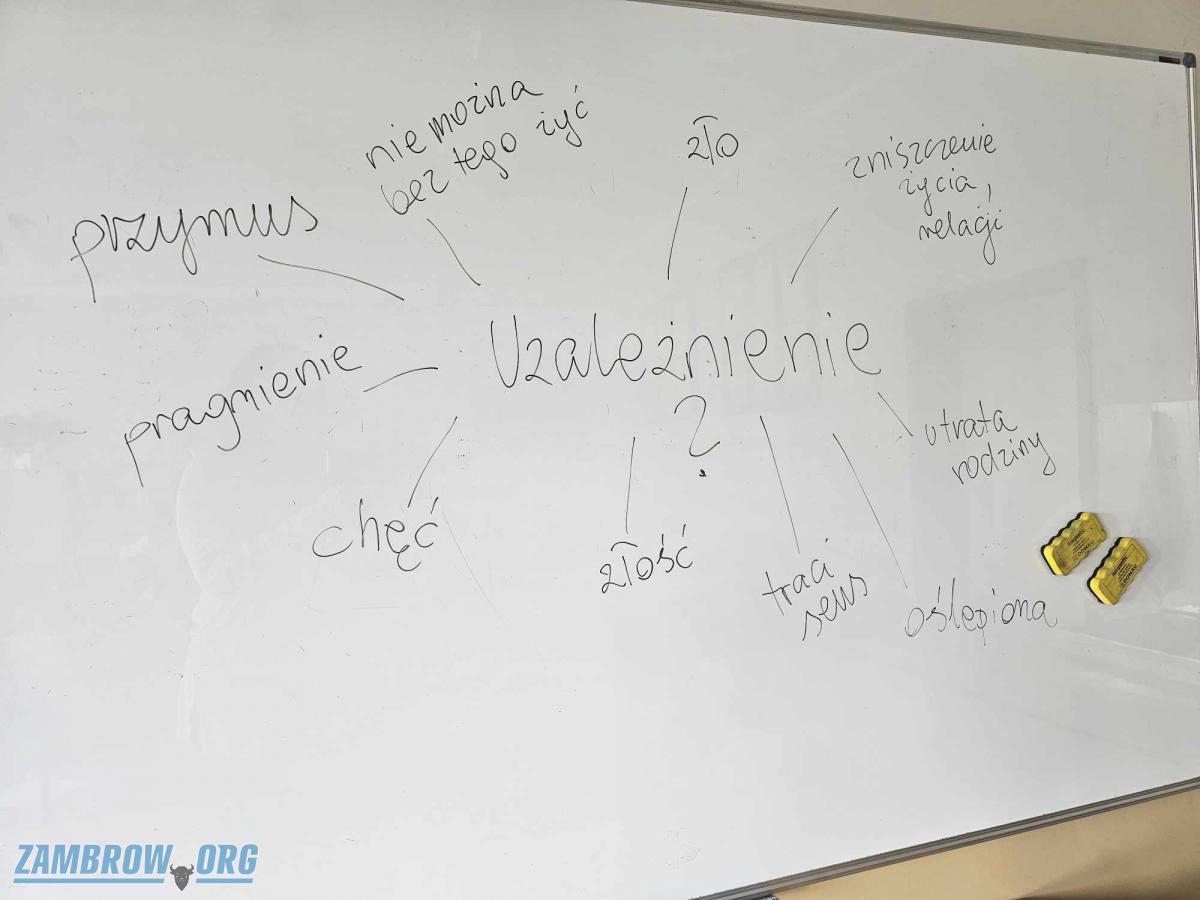 nie można
bez tego żyć
zło
zniszczenie
życia,
relacji
przymus
Uzależnienie
?
pragnienie
utrata
rodziny
chęć
złość
traci
sens
oślepiona
DONAU
DONAU
ZAMBROW.ORG